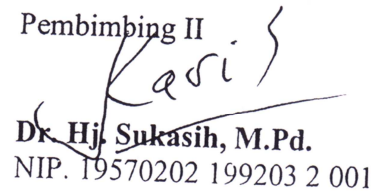 Pembimbing II
Dr. Hj. Sukasih, M.Pd.
NIP. 19570202 199203 2 001